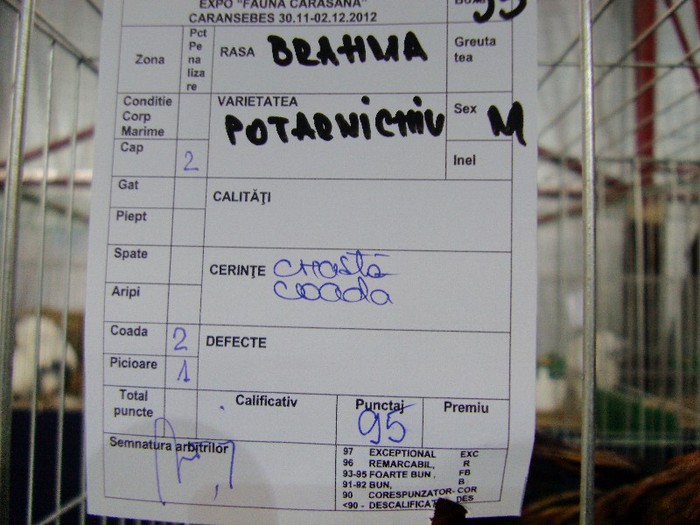 EXPO "FAUNA CARASANA"
CARANSEBES 30.11-02.12.2012
Zona
Pct
Pe
na
liza
re
RASA BRAHMA
Greuta
tea
Conditie
Corp
Marime
VARIETATEA
POTARNICHIU
Sex M
Cap 2
Inel
Gat
CALITĂŢI
Piept
Spate
CERINŢE creastă
coada
Aripi
Coada 2
DEFECTE
Picioare 1
Total
puncte
Calificativ
Punctaj
95
Premiu
Semnatura arbitrilor
97 EXCEPTIONAL EXC
96 REMARCABIL, R
93-95 FOARTE BUN , FB
91-92 BUN, B
90 CORESPUNZATOR-COR
<90 - DESCALIFICAT DES